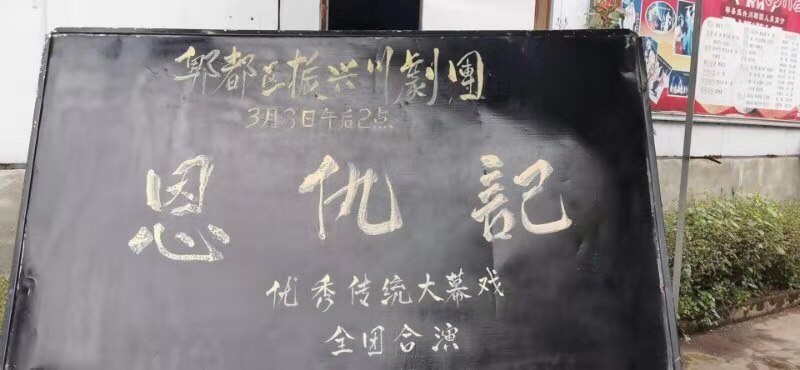 郫都区振兴川劇團
3月3日午后2点
恩仇記
优秀传统大幕戏
全团合演